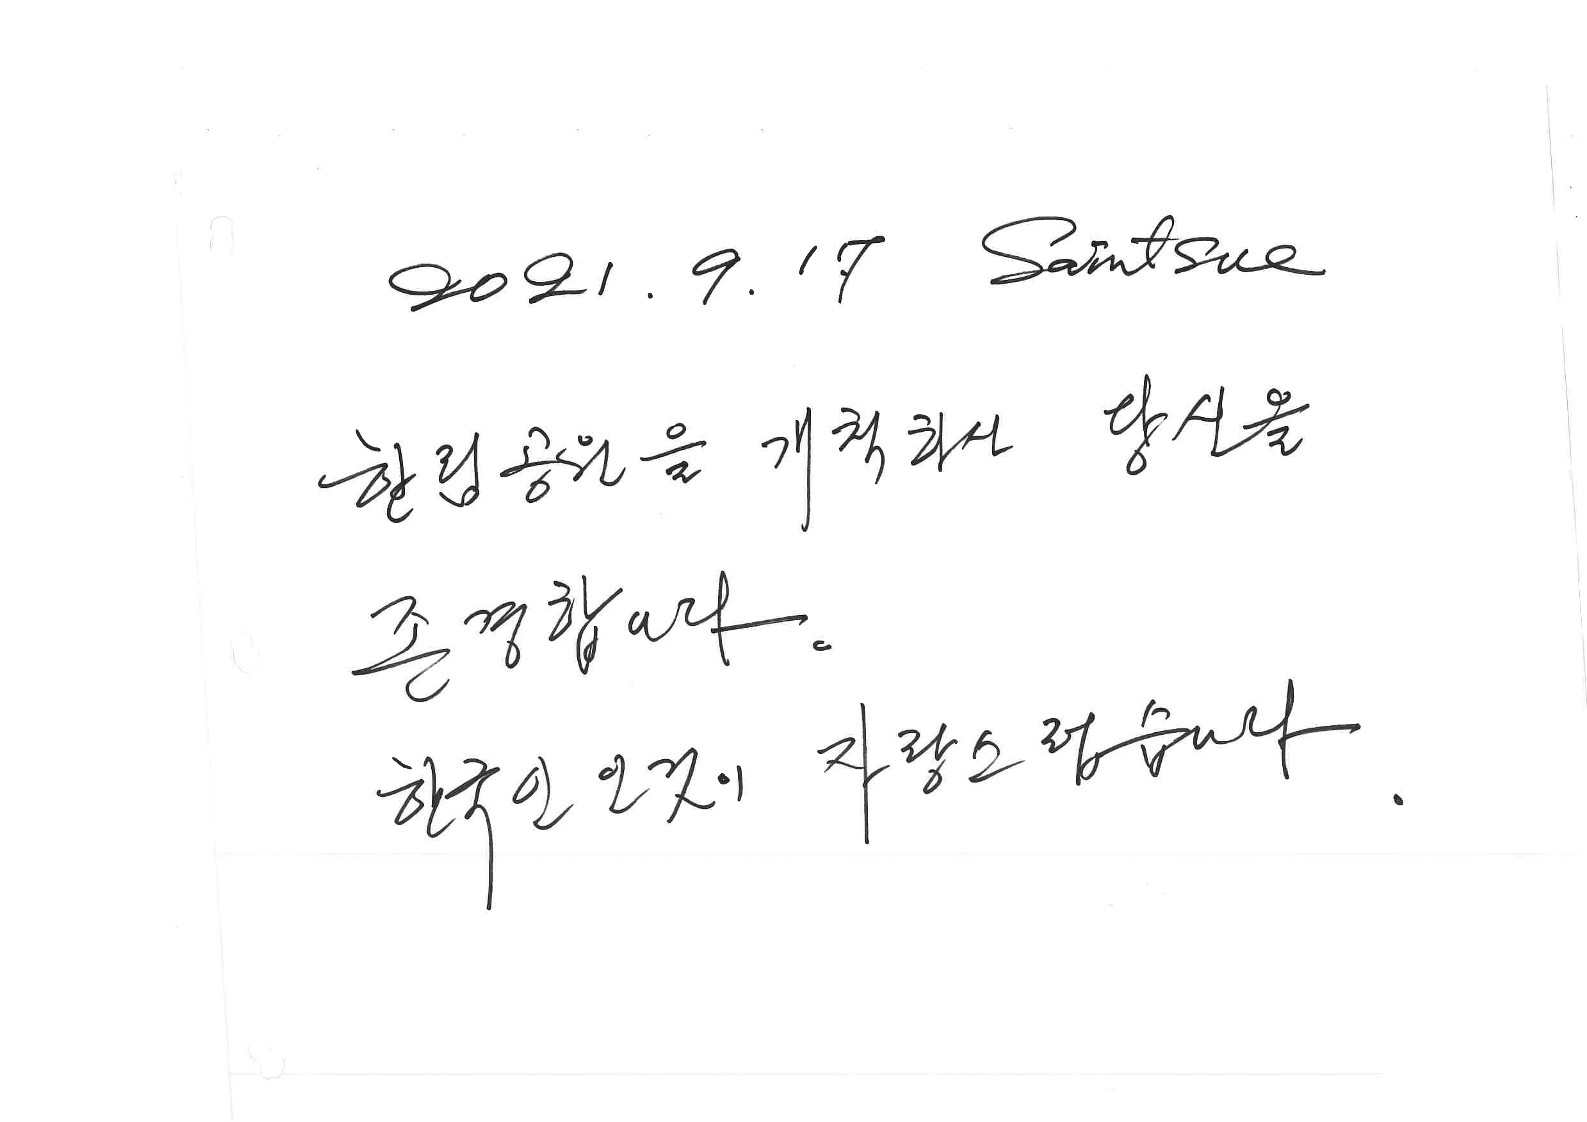 2021. 9. 17 Saintsue
한림공원을 개척하신 당신을
존경합니다.
한국인 인것이 자랑스럽습니다.